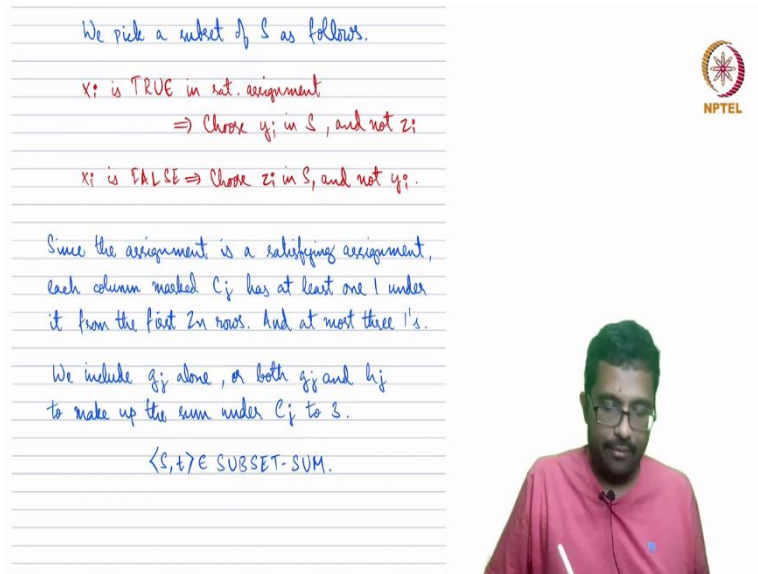 We pick a subset of S as follows.
xi is TRUE in sat. assignment
⇒ Choose yi in S, and not zi
xi is FALSE ⇒ Choose zi in S, and not yi.
Since the assignment is a satisfying assignment,
each column marked Cj has at least one 1 under
it from the first 2n rows. And at most three 1's.
We include gj alone, or both gj and hj
to make up the sum under Cj to 3.
<S,t> ∈ SUBSET-SUM.
NPTEL